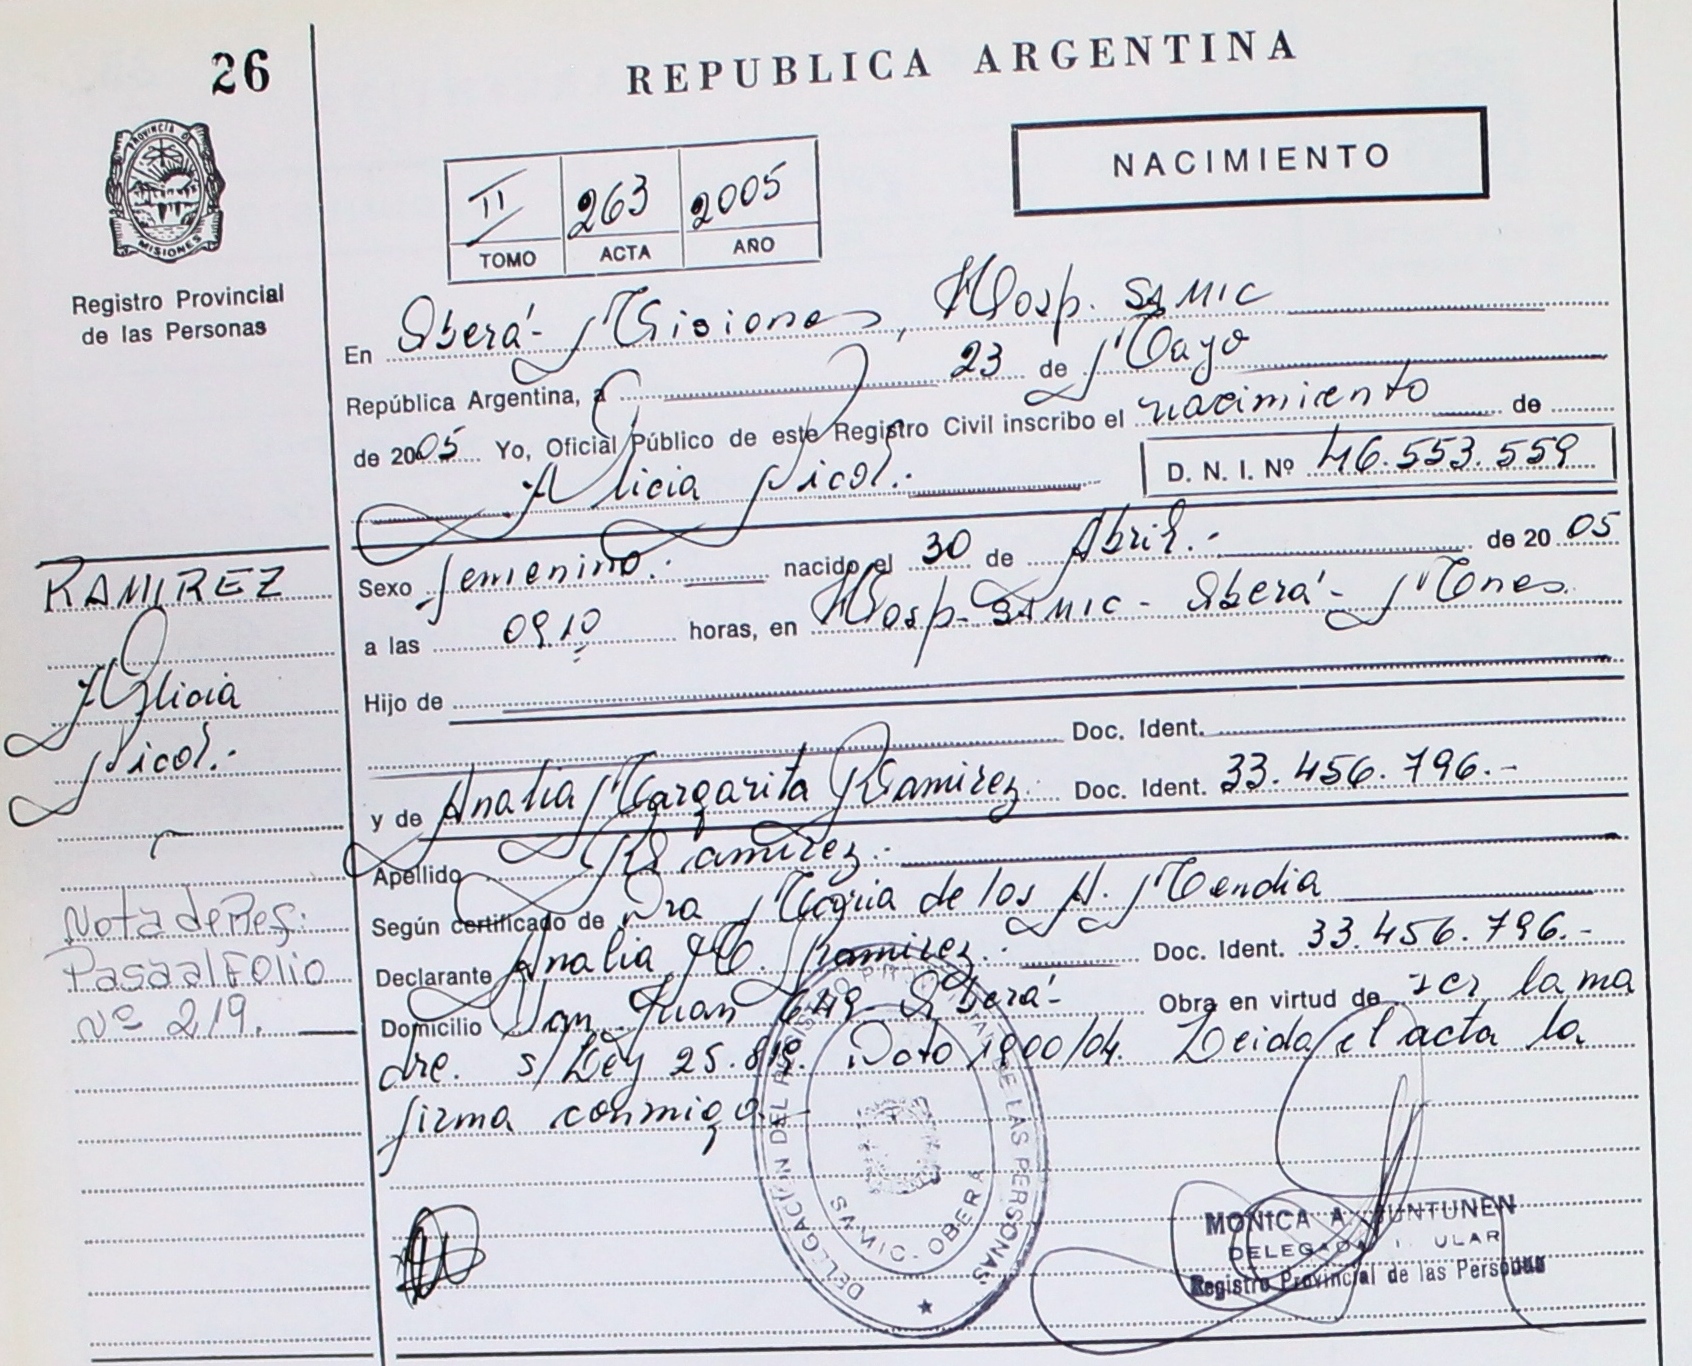 26
REPUBLICA ARGENTINA
PROVINCIA DE
MISIONES
Registro Provincial
de las Personas
II 263 2005
TOMO ACTA AÑO
NACIMIENTO
En Oberá - Misiones, Hosp. SAMIC
República Argentina, a 23 de Mayo
de 2005 Yo, Oficial Público de este Registro Civil inscribo el nacimiento de
Alicia Nicol.- D. N. I. Nº 46.553.559
Sexo femenino.- nacido el 30 de Abril.- de 20 05
a las 09.10 horas, en Hosp. SAMIC - Oberá - Mnes.
Hijo de
Doc. Ident.
y de Analia Margarita Ramirez. Doc. Ident. 33.456.796.-
Apellido Ramirez.-
Según certificado de Dra Maria de los A. Mendia
Declarante Analia M. Ramirez.- Doc. Ident. 33.456.796.-
Domicilio San Juan 649 - Oberá - Obra en virtud de ser la ma
dre. s/Ley 25.819. Dcto 1900/04. Leida el acta la
firma conmigo.-
RAMIREZ
Alicia
Nicol.-
Nota de Ref:
Pasa al Folio
Nº 219.
DELEGACIÓN DEL REGISTRO PROVINCIAL DE LAS PERSONAS
SAMIC - OBERÁ
MONICA A. JUNTUNEN
DELEGADA TITULAR
Registro Provincial de las Personas